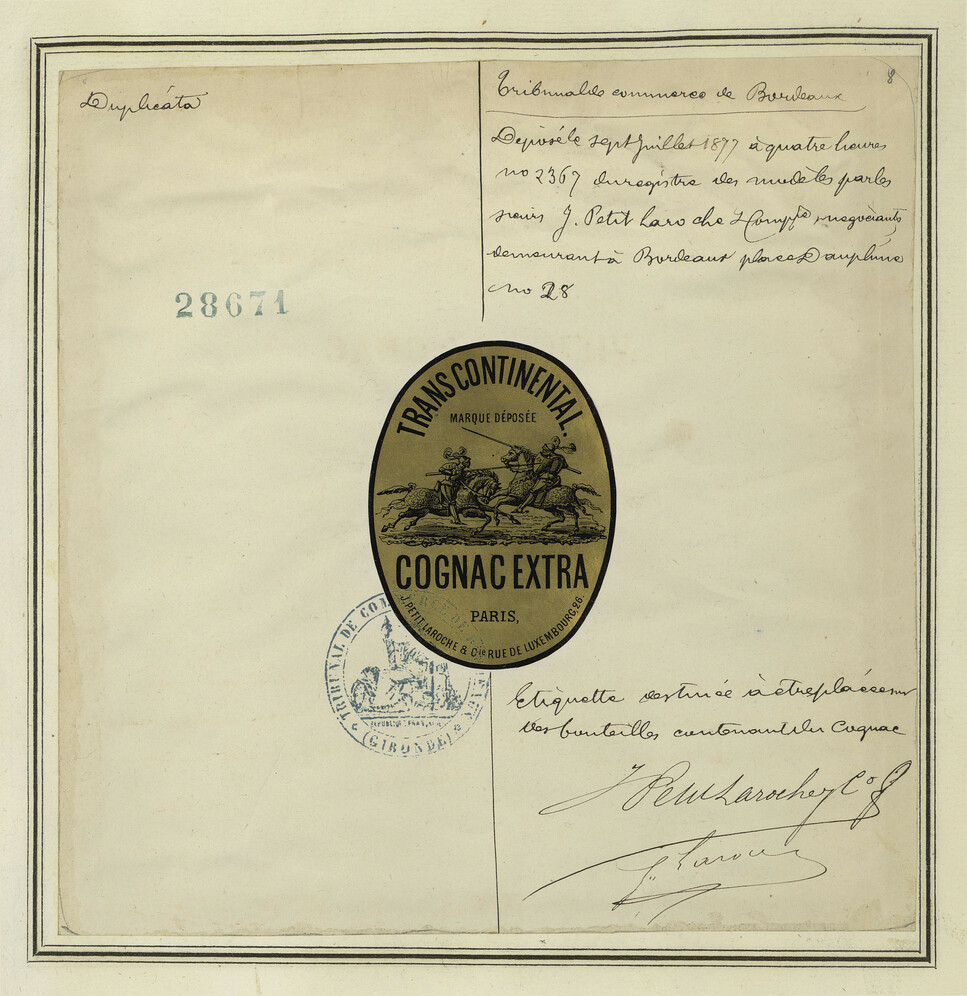 Duplicata
8
Tribunal de commerce de Bordeaux
Déposé le sept Juillet 1877 à quatre heures
no 2367 du registre des modèles par les
sieurs J. Petit Laroche & Compie, négociants
demeurant à Bordeaux place Dauphine
no 28
28671
TRANSCONTINENTAL.
MARQUE DÉPOSÉE
COGNAC EXTRA
PARIS,
J. PETIT LAROCHE & Cie RUE DE LUXEMBOURG, 26.
TRIBUNAL DE COMMERCE DE
REPUBLIQUE FRANÇAISE
(GIRONDE)
Etiquette destinée à être placée sur
des bouteilles contenant du Cognac
J Petit Laroche & Co
J. Laroche